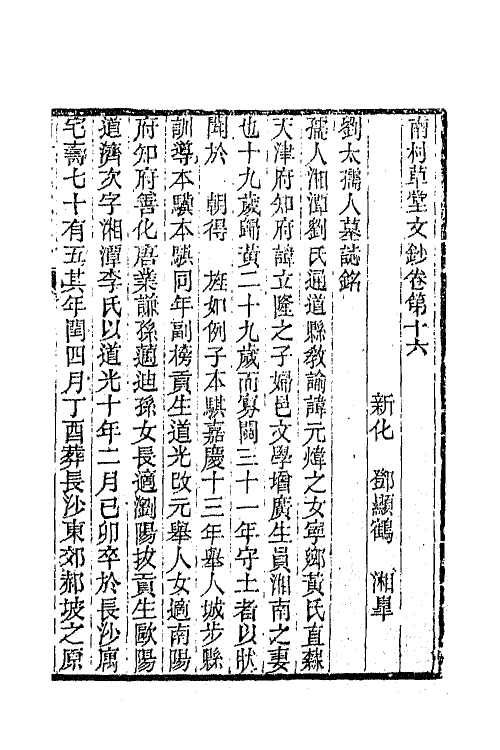 南村草堂文鈔卷第十六
新化　鄧顯鶴　湘臯
劉太孺人墓誌銘
孺人湘潭劉氏通道縣教諭諱元煒之女寧鄉黃氏直隸
天津府知府諱立隆之子婦邑文學增廣生員湘南之妻
也十九歲歸黃二十九歲而寡閱三十一年守土者以狀
聞於　朝得　旌如例子本騏嘉慶十三年舉人城步縣
訓導本驥本騏同年副榜貢生道光改元舉人女適南陽
府知府善化唐業謙孫適迪孫女長適瀏陽拔貢生歐陽
道濟次字湘潭李氏以道光十年二月己卯卒於長沙寓
宅壽七十有五其年閏四月丁酉葬長沙東郊郝坡之原